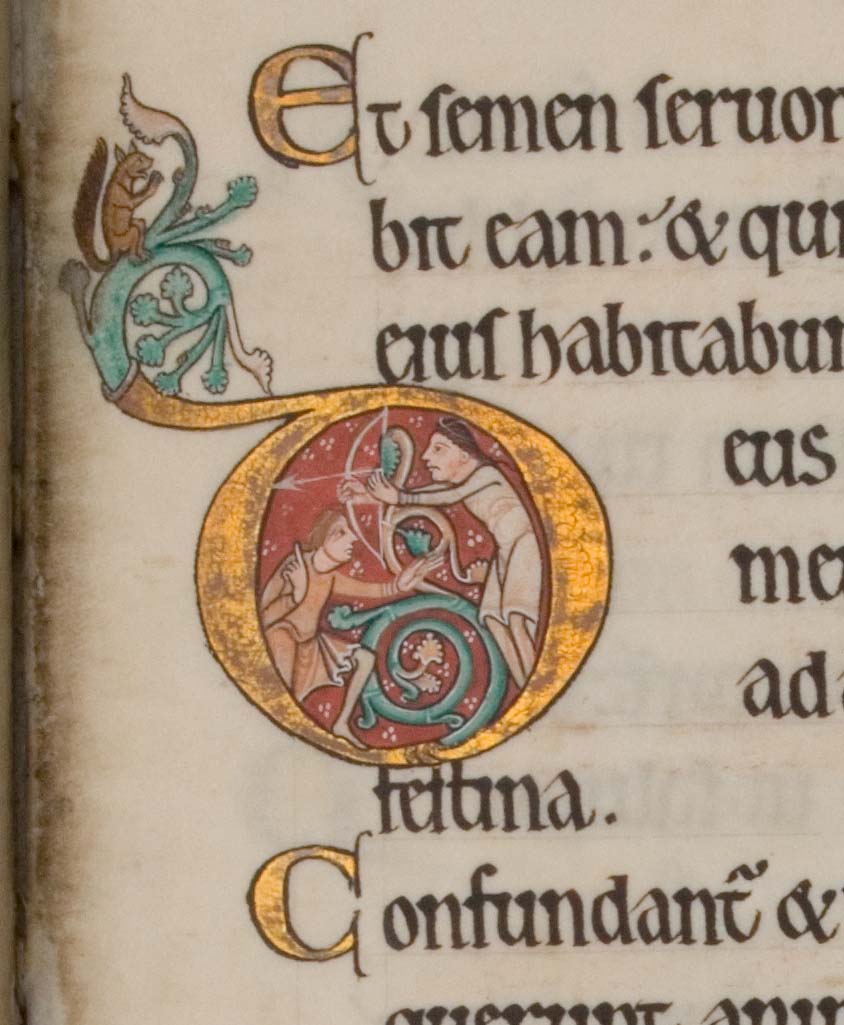 Et semen seruor
bit eam: & qui
eius habitabun
Deus
me
ad a
festina.
Confundant̃ & 
querunt anim